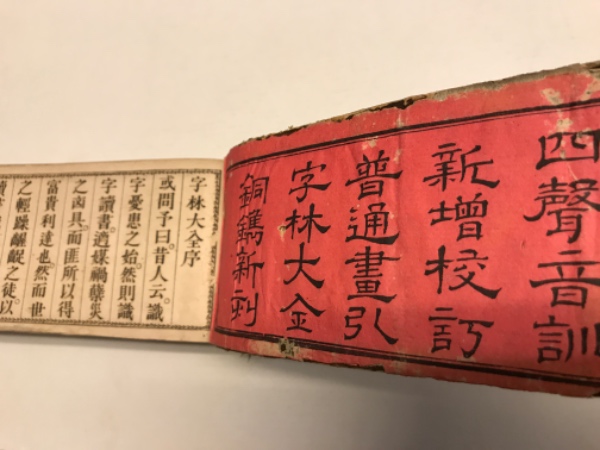 四聲音訓
新增校訂
普通畫引
字林大全
銅鐫新刻
字林大全序
或問予曰。昔人云。識
字憂患之始。然則識
字讀書。適媒禍孽災
之具。而匪所以得
富貴利達也。然而世
之輕躁齷齪之徒。以